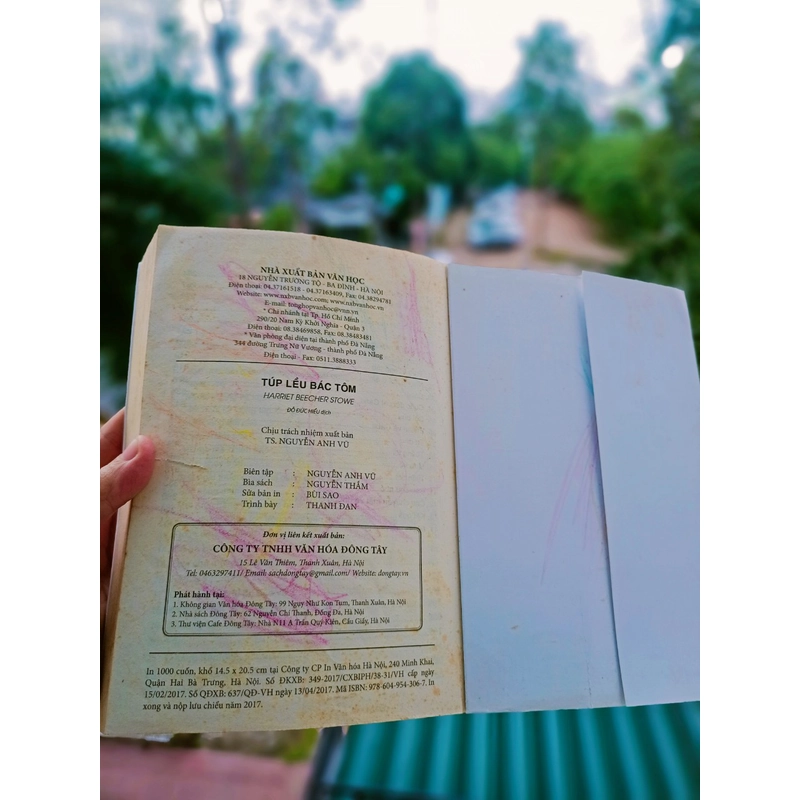 NHÀ XUẤT BẢN VĂN HỌC
18 NGUYỄN TRƯỜNG TỘ - BA ĐÌNH - HÀ NỘI
Điện thoại: 04.37161518 - 04.37163409, Fax: 04.38294781
Website: www.nxbvanhoc.com; www.nxbvanhoc.vn
E-mail: tonghopvanhoc@vnn.vn
* Chi nhánh tại Tp. Hồ Chí Minh
290/20 Nam Kỳ Khởi Nghĩa - Quận 3
Điện thoại: 08.38469858, Fax: 08.38483481
* Văn phòng đại diện tại thành phố Đà Nẵng
344 đường Trưng Nữ Vương - thành phố Đà Nẵng
Điện thoại - Fax: 0511.3888333
TÚP LỀU BÁC TÔM
HARRIET BEECHER STOWE
ĐỖ ĐỨC HIỂU dịch
Chịu trách nhiệm xuất bản
TS. NGUYỄN ANH VŨ
Biên tập : NGUYỄN ANH VŨ
Bìa sách : NGUYỄN THẮM
Sửa bản in : BÙI SAO
Trình bày : THANH ĐAN
Đơn vị liên kết xuất bản:
CÔNG TY TNHH VĂN HÓA ĐÔNG TÂY
15 Lê Văn Thiêm, Thanh Xuân, Hà Nội
Tel: 0463297411/ Email: sachdongtay@gmail.com/ Website: dongtay.vn
Phát hành tại:
1. Không gian Văn hóa Đông Tây: 99 Ngụy Như Kon Tum, Thanh Xuân, Hà Nội
2. Nhà sách Đông Tây: 62 Nguyễn Chí Thanh, Đống Đa, Hà Nội
3. Thư viện Cafe Đông Tây: Nhà N11 A Trần Quý Kiên, Cầu Giấy, Hà Nội
In 1000 cuốn, khổ 14.5 x 20.5 cm tại Công ty CP In Văn hóa Hà Nội, 240 Minh Khai,
Quận Hai Bà Trưng, Hà Nội. Số ĐKXB: 349-2017/CXBIPH/38-31/VH cấp ngày
15/02/2017. Số QĐXB: 637/QĐ-VH ngày 13/04/2017. Mã ISBN: 978-604-954-306-7. In
xong và nộp lưu chiểu năm 2017.